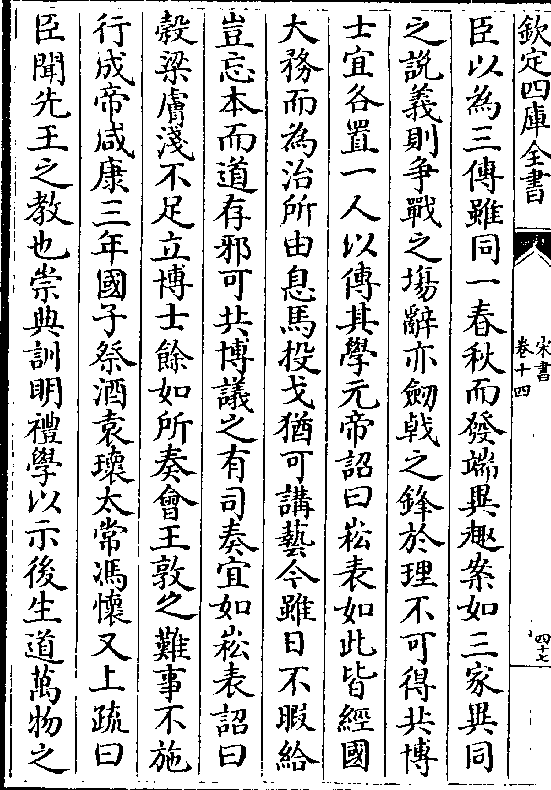 欽定四庫全書
宋書
卷十四
四十七
臣以為三傳雖同一春秋而發端異趣案如三家異同
之説義則爭戰之塲辭亦劒㦸之鋒於理不可得共博
士宜各置一人以傳其學元帝詔曰崧表如此皆經國
大務而為治所由息馬投戈猶可講藝今雖日不暇給
豈忘本而道存邪可共博議之有司奏宜如崧表詔曰
穀梁膚淺不足立博士餘如所奏會王敦之難事不施
行成帝咸康三年國子祭酒袁瓌太常馮懷又上疏曰
臣聞先王之教也崇典訓明禮學以示後生道萬物之